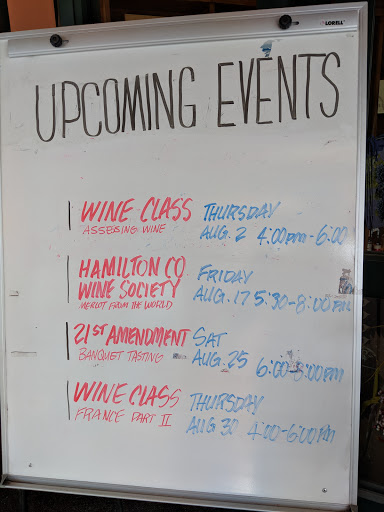 LORELL
UPCOMING EVENTS
WINE CLASS THURSDAY
ASSESSING WINE AUG. 2 4:00pm-6:00
HAMILTON CO FRIDAY
WINE SOCIETY AUG. 17 5:30-8:00PM
MERLOT FROM THE WORLD
21ST AMENDMENT SAT
BANQUET TASTING AUG. 25 6:00-8:00pm
WINE CLASS THURSDAY
FRANCE PART II AUG 30 4:00-6:00PM